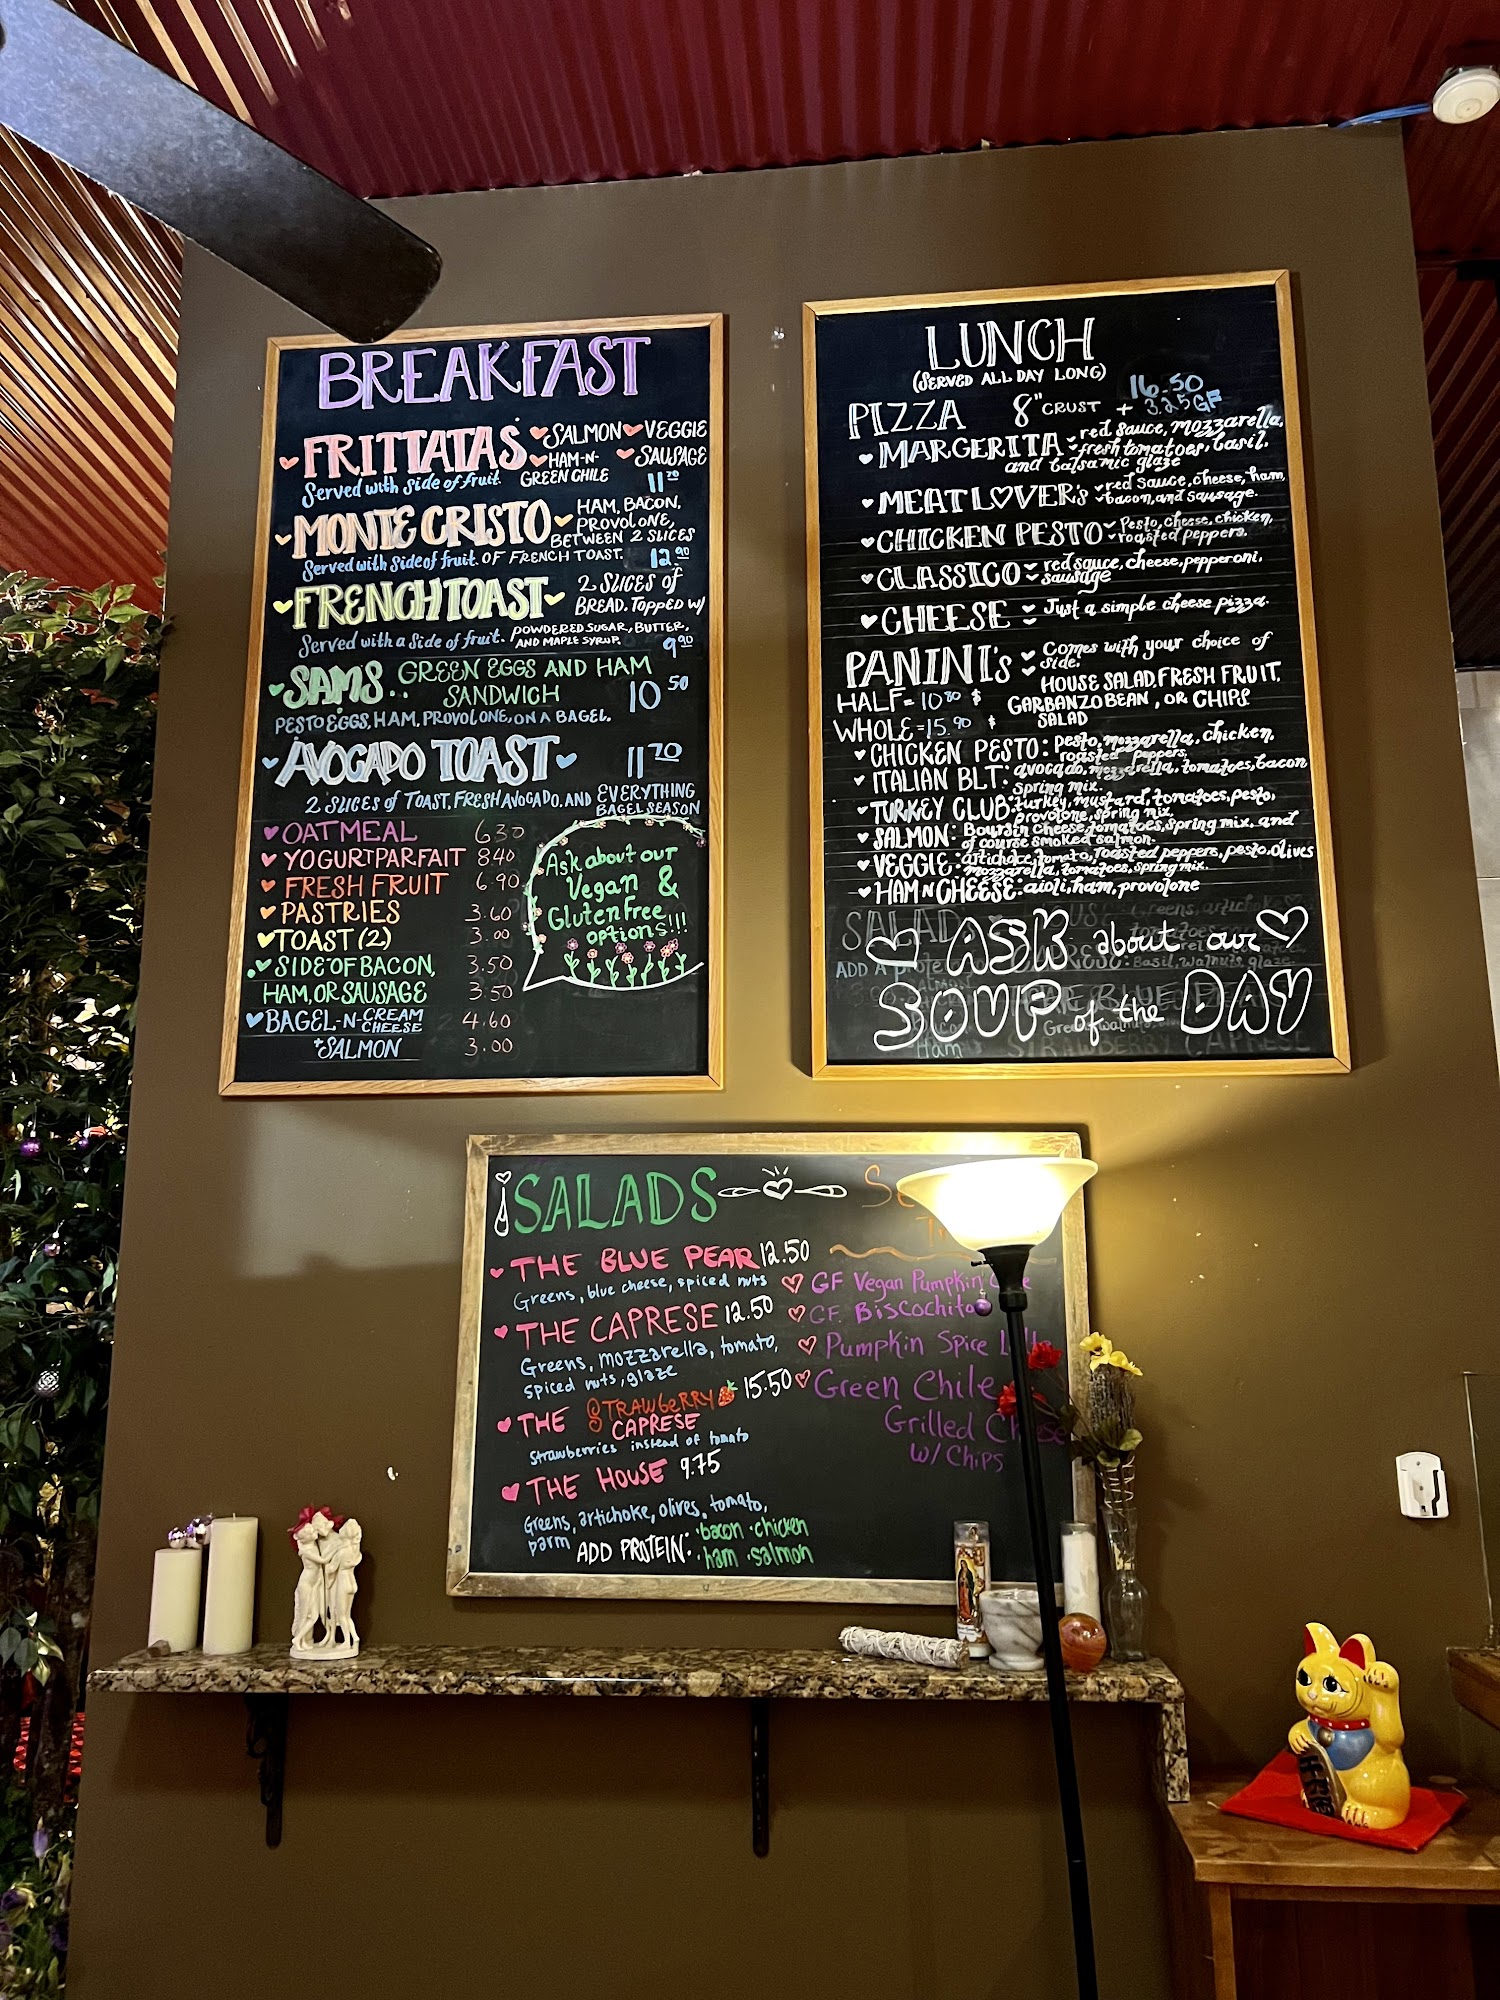 BREAKFAST
FRITTATAS SALMON VEGGIE
HAM-N- SAUSAGE
GREEN CHILE
Served with side of fruit. 11 70
MONTE CRISTO HAM, BACON,
PROVOLONE,
BETWEEN 2 SLICES
Served with side of fruit. OF FRENCH TOAST. 12 90
FRENCH TOAST 2 SLICES of
BREAD. TOPPED W/
Served with a side of fruit. POWDERED SUGAR, BUTTER,
AND MAPLE SYRUP. 9 90
SAMS.. GREEN EGGS AND HAM
SANDWICH 10 50
PESTO EGGS, HAM, PROVOLONE, ON A BAGEL.
AVOCADO TOAST 11 70
2 SLICES of TOAST, FRESH AVOCADO, AND EVERYTHING
BAGEL SEASON
OATMEAL 6 30
YOGURT PARFAIT 8 40
FRESH FRUIT 6.90
PASTRIES 3.60
TOAST (2) 3.00
SIDE OF BACON, 3.50
HAM, OR SAUSAGE 3.50
BAGEL-N-CREAM CHEESE 4.60
+SALMON 3.00
Ask about our
Vegan &
Gluten free
options!!!
LUNCH
(SERVED ALL DAY LONG)
PIZZA 8" CRUST 16.50
+ 3.25 GF
MARGERITA red sauce, mozzarella,
fresh tomatoes, basil.
and balsamic glaze
MEAT LOVER'S red sauce, cheese, ham,
bacon, and sausage.
CHICKEN PESTO Pesto, cheese, chicken,
roasted peppers.
CLASSICO red sauce, cheese, pepperoni,
sausage
CHEESE Just a simple cheese pizza.
PANINI'S Comes with your choice of
side.
HOUSE SALAD, FRESH FRUIT,
HALF = 10 80 $ GARBANZO BEAN, OR CHIPS
SALAD
WHOLE = 15.90 $
CHICKEN PESTO: pesto, mozzarella, chicken,
roasted peppers,
ITALIAN BLT: avocado, mozzarella, tomatoes, bacon
spring mix.
TURKEY CLUB: turkey, mustard, tomatoes, pesto,
provolone, spring mix,
SALMON: Boursin cheese, tomatoes, spring mix, and
of course smoked salmon.
VEGGIE: artichoke, tomato, roasted peppers, pesto, olives
mozzarella, tomatoes, spring mix.
HAM N CHEESE: aioli, ham, provolone
ASK about our
SOUP of the DAY
SALADS
THE BLUE PEAR 12.50
Greens, blue cheese, spiced nuts
THE CAPRESE 12.50
Greens, mozzarella, tomato,
spiced nuts, glaze
THE STRAWBERRY 15.50
CAPRESE
Strawberries instead of tomato
THE HOUSE 9.75
Greens, artichoke, olives, tomato,
parm
ADD PROTEIN: ·bacon ·chicken
·ham ·salmon
GF Vegan Pumpkin
GF. Biscochito
Pumpkin Spice
Green Chile
Grilled Cheese
W/ Chips